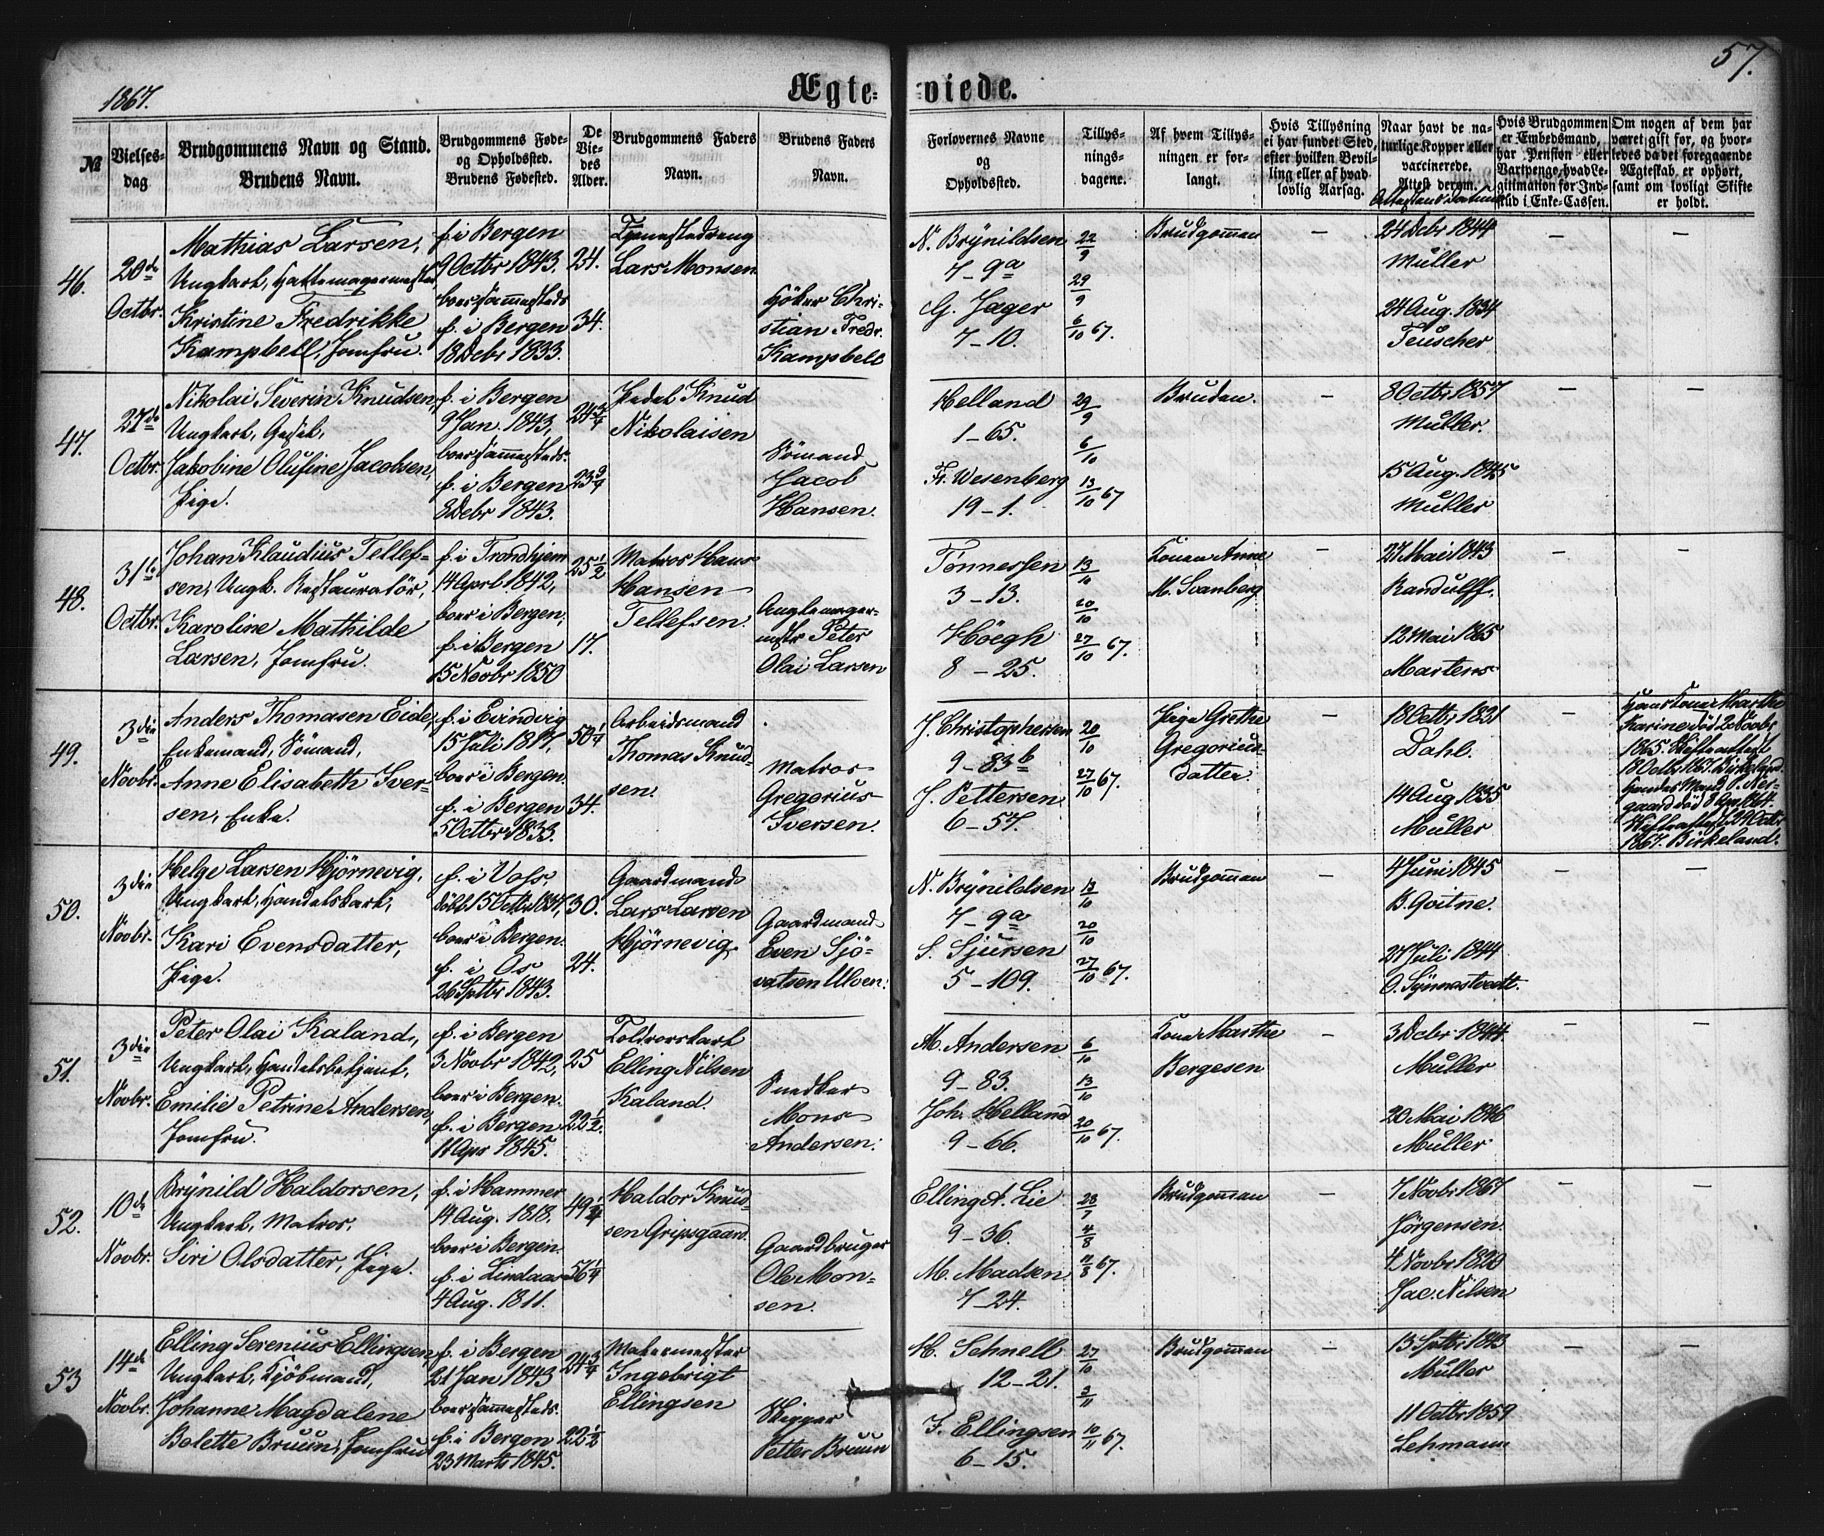 57.
1867.
Ægte=
=viede.
№
Vielses=
dag.
Brudgommens Navn og Stand.
Brudens Navn.
Brudgommens Føde=
og Opholdssted.
Brudens Fødested.
De
Vie=
des
Alder.
Brudgommens Faders
Navn.
Brudens Faders
Navn.
Forlovernes Navne
og
Opholdssted.
Tillys=
nings=
dagene.
Af hvem Tillys=
ningen er for=
langt.
Hvis Tillysning
ei har fundet Sted,
efter hvilken Bevil=
ling eller af hvad
lovlig Aarsag.
Naar havt de na=
turlige Kopper eller
vaccinerede.
Attest derom.
Hvis Brudgommen
er Embedsmand,
har Pension eller
Vartpenge, hvad Le=
gitimation for Ind=
skud i Enke-Cassen.
Om nogen af dem har
været gift før, og hvor=
ledes da det foregaaende
Ægteskab, er ophørt,
samt om lovligt Skifte
er holdt.
46.
20de
Octbr.
Mathias Larsen,
Ungkarl, Hattemagermester
Kristine Fredrikke
Kampbell, Jomfru.
f. i Bergen
9 Octbr 1843.
boer sammesteds
f. i Bergen
18 Debr 1833.
24.
34.
Lars Monsen
Høker Chri=
stian Fredr.
Kampbell
N. Brynildsen
7-9a
G. Jæger
7-10.
22/9
29/9
6/10 67.
Brudgommen
—
24 Debr 1844
Müller
24 Aug. 1834
Teuscher
—
—
47.
27de
Octbr.
Nikolai Severin Knudsen,
Ungkarl, Gesel,
Jakobine Olufine Jacobsen,
Pige.
f. i Bergen
9 Jan. 1843,
boer sammesteds.
f. i Bergen
8 Debr 1843.
24 3/4
23 3/4
Pedel Knud
Nikolaisen
Sømand
Jacob
Hansen.
Helland
1-65.
Fr. Wesenberg
19-1.
29/9
6/10
13/10 67
Bruden.
—
8 Octbr 1857
Müller.
15 Aug. 1845
Müller
—
—
48.
31te
Octbr.
Johan Klaudius Tellef=
sen, Ungk. Restauratør,
Karoline Mathilde
Larsen, Jomfru.
f. i Trondhjem
14 April 1842,
boer i Bergen,
f. i Bergen
15 Novbr 1850
25 1/2
17.
Matros Hans
Hansen
Tellefsen.
mester Peter
Olai Larsen
Tønnessen
3-13.
Høegh
8-25.
13/10
20/10
27/10 67.
Konen Anne
M. Svanberg
—
27 Mai 1843
Randulff.
13 Mai 1865
Martens
—
—
49.
3die
Novbr.
Anders Thomasen Eide,
Enkemand, Sømand,
Anne Elisabeth Iver=
sen, Enke.
f. i Evindvig
15 Juli 1817,
boer i Bergen.
f. i Bergen
5 Octbr 1833.
50 1/4
34.
Arbeidsmand
Thomas Knud=
sen.
Matros
Gregorius
Iversen.
J. Christophersen
9-83b
J. Pettersen
6-57.
20/10
27/10 67.
Pige Grethe
Gregorius=
datter
—
18 Octbr 1821
Dahl.
14 Aug. 1835
Müller
—
Hans Kone Marthe
Karine død 20 Novbr
1865. Skifteattest
18 Octbr 1867. Birkeland.
Hendes Mand O. Nor=
gaard død 9 Apr. 1864.
Skifteattest 29 Octbr
1867. Birkeland.
50.
3die
Novbr.
Helge Larsen Hjørnevig,
Ungkarl, Handelskarl,
Kari Evensdatter,
Pige.
f. i Voss,
døbt 15 Octbr 1837,
boer i Bergen.
f. i Os
26 Sptbr 1843.
30.
24.
Gaardmand
Lars Larsen
Hjørnevig
Gaardmand
Even Sjo=
vatsen Ulven.
N. Brynildsen
7-9a
S. Sjursen
5-109.
13/10
20/10
27/10 67.
Brudgommen
—
4 Juni 1845
B. Goitne.
27 Juli 1844
O. Synnestvedt.
—
—
51.
3die
Novbr.
Peter Olai Kaland,
Ungkarl, Handelsbetjent,
Emilie Petrine Andersen,
Jomfru.
f. i Bergen
3 Novbr 1842,
boer i Bergen.
f. i Bergen
11 Apr 1845.
25
22 1/2.
Toldrorskarl
Elling Nilsen
Kaland.
Snedker
Mons
Andersen.
M. Andersen
9-83.
Joh. Helland
9-66.
6/10
13/10
20/10 67.
Kone Marthe
Bergesen
—
3 Debr 1844
Müller
20 Mai 1846
Müller
—
—
52.
10de
Novbr.
Brynild Haldorsen,
Ungkarl, Matros,
Siri Olsdatter, Pige.
f. i Hammer
14 Aug. 1818.
boer i Bergen.
f. i Lindaas
4 Aug. 1811.
49 1/4
56 1/4
Haldor Knud=
sen Gripsgaard
Gaardbruger
Ole Mon=
sen.
Elling A. Lie
9-36.
M. Madsen
7-24.
28/7
4/8
11/8 67.
Brudgommen
—
7 Novbr 1867
Jørgensen.
4 Novbr 1820
Jac. Nilsen
—
—
53
14de
Novbr.
Elling Serenius Ellingsen,
Ungkarl, Kjøbmand,
Johanne Magdalene
Bolette Bruun, Jomfru
f. i Bergen
21 Jan 1843
boer sammesteds.
f. i Bergen
23 Marts 1845.
24 3/4
22 1/2
Malermester
Ingebrigt
Ellingsen
Skipper
Petter Bruun
H. Schnell
12-21.
F. Ellingsen
6-15.
27/10
3/11
10/11 67.
Brudgommen
—
13 Sptbr 1843
Müller
11 Octbr 1859
Lehmann
—
—